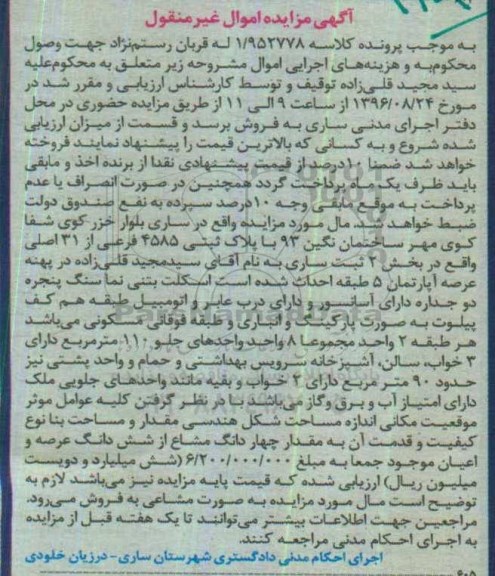 آگهی مزایده اموال غیرمنقول
به موجب پرونده کلاسه ۱/۹۵۲۷۷۸ له قربان رستم‌نژاد جهت وصول
محکوم‌به و هزینه‌های اجرایی اموال مشروحه زیر متعلق به محکوم‌علیه
سید مجید قلی‌زاده توقیف و توسط کارشناس ارزیابی و مقرر شد در
مورخ ۱۳۹۶/۰۸/۲۴ از ساعت ۹ الی ۱۱ از طریق مزایده حضوری در محل
دفتر اجرای مدنی ساری به فروش برسد و قسمت از میزان ارزیابی
شده شروع و به کسانی که بالاترین قیمت را پیشنهاد نمایند فروخته
خواهد شد ضمنا ۱۰درصد از قیمت پیشنهادی نقدا از برنده اخذ و مابقی
باید ظرف یک ماه پرداخت گردد همچنین در صورت انصراف یا عدم
پرداخت به موقع مابقی وجه ۱۰درصد سپرده به نفع صندوق دولت
ضبط خواهد شد. مال مورد مزایده واقع در ساری بلوار خزر کوی شفا
کوی مهر ساختمان نگین ۹۳ با پلاک ثبتی ۴۵۸۵ فرعی از ۳۱ اصلی
واقع در بخش ۲ ثبت ساری به نام آقای سیدمجید قلی‌زاده در پهنه
عرصه آپارتمان ۵ طبقه احداث شده است اسکلت بتنی نما سنگ پنجره
دو جداره دارای آسانسور و دارای درب عابر و اتومبیل طبقه هم کف
پیلوت به صورت پارکینگ و انباری و طبقه فوقانی مسکونی می‌باشد
هر طبقه ۲ واحد مجموعا ۸ واحد واحدهای جلو ۱۱۰ مترمربع دارای
۳ خواب، سالن، آشپزخانه سرویس بهداشتی و حمام و واحد پشتی نیز
حدود ۹۰ متر مربع دارای ۲ خواب و بقیه مانند واحدهای جلویی ملک
دارای امتیاز آب و برق وگاز می‌باشد با در نظر گرفتن کلیه عوامل موثر
موقعیت مکانی اندازه مساحت شکل هندسی مقدار و مساحت بنا نوع
کیفیت و قدمت آن به مقدار چهار دانگ مشاع از شش دانگ عرصه و
اعیان موجود جمعا به مبلغ ۶/۲۰۰/۰۰۰/۰۰۰ (شش میلیارد و دویست
میلیون ریال) ارزیابی شده که قیمت پایه مزایده نیز می‌باشد لازم به
توضیح است مال مورد مزایده به صورت مشاعی به فروش می‌رود.
مراجعین جهت اطلاعات بیشتر می‌توانند تا یک هفته قبل از مزایده
به اجرای احکام مدنی مراجعه کنند.
اجرای احکام مدنی دادگستری شهرستان ساری- درزیان خلودی
۶۰۵